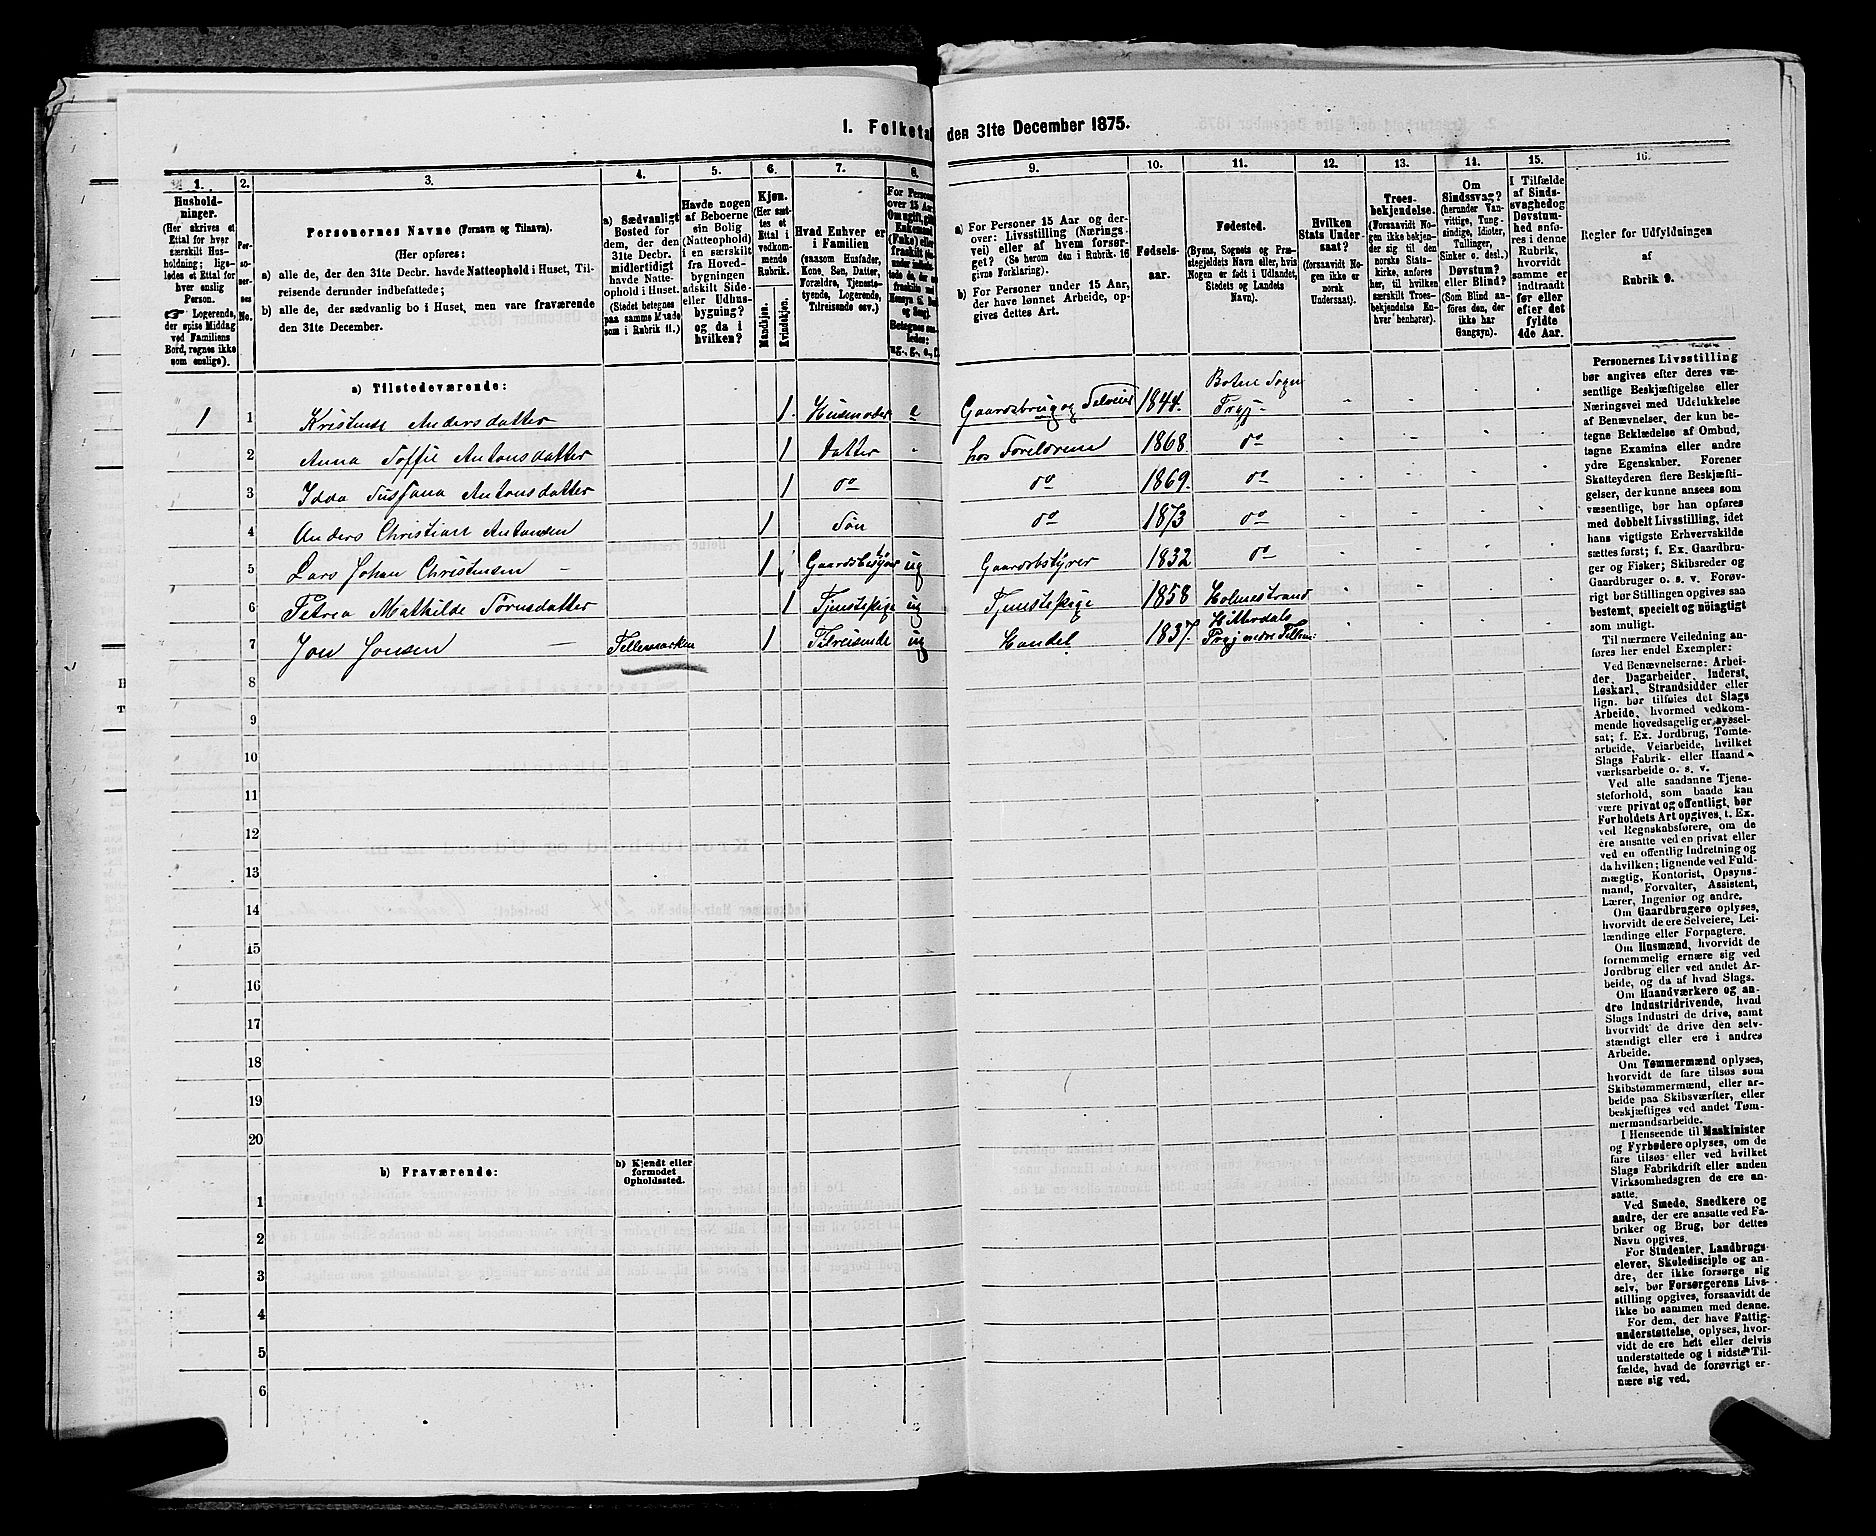 I. Folketal den 31te December 1875.
1. 2. 3. 4. 5. 6. 7. 8. 9. 10. 11. 12. 13. 14. 15. 16.
Hushold-
ninger.
(Her skrives et
Ettal for hver
særskilt Hus-
holdning; lige-
ledes et Ettal for
hver enslig
Person.
☛ Logerende,
der spise Middag
ved Familiens
Bord, regnes ikke
som enslige).
Per-
so-
ner-
nes
No.
Personernes Navne (Fornavn og Tilnavn).
(Her opføres:
a) alle de, der den 31te Decbr. havde Natteophold i Huset, Til-
reisende derunder indbefattede;
b) alle de, der sædvanlig bo i Huset, men vare fraværende
den 31te December.
a) Sædvanligt
Bosted for
dem, der den
31te Decbr.
midlertidigt
havde Natte-
ophold i Huset.
(Stedet betegnes
paa samme Maade
som i Rubrik 11.)
Havde nogen
af Beboerne
sin Bolig
(Natteophold)
i en særskilt
fra Hoved-
bygningen
adskilt Side-
eller Udhus-
bygning?
og da i
hvilken?
Kjøn.
(Her sæt-
tes et
Ettal i
vedkom-
mende
Rubrik.
Mandkjøn.
Kvindekjøn.
Hvad Enhver er
i Familien
(saasom Husfader,
Kone, Søn, Datter,
Forældre, Tjeneste-
tyende, Logerende,
Tilreisende osv.)
For Persone
over 15 Aar
a) For Personer 15 Aar og der-
over: Livsstilling (Nærings-
vei) eller af hvem forsør-
get? (Se herom den i Rubrik 16
givne Forklaring).
b) For Personer under 15 Aar,
der have lønnet Arbeide, op-
gives dettes Art.
Fødsels-
aar.
Fødested.
(Byens, Sognets og Præ-
stegjeldets Navn eller, hvis
Nogen er født i Udlandet,
Stedets og Landets
Navn).
Hvilken
Stats Under-
saat?
(forsaavidt No-
gen ikke er
norsk
Undersaat).
Troes-
bekjendelse.
(Forsaavidt No-
gen ikke bekjen-
der sig til den
norske Stats-
kirke, anføres
her, til hvilken
særskilt Troes-
bekjendelse En-
hver henhører).
Om
Sindssvag?
(herunder Van-
vittige, Tung-
sindige, Idioter,
Tullinger,
Sinker o. desl.)
Døvstum?
eller Blind?
(Som Blind an-
føres den, der
ikke har
Gangsyn).
I Tilfælde
af Sinds-
svaghed og
Døvstum-
hed anfø-
res i denne
Rubrik,
hvorvidt
samme er
indtraadt
før eller
efter det
fyldte
4de Aar.
Regler for Udfyldningen
af
Rubrik 9.
a) Tilstedeværende:
1 1 Kristine Andersdatter 1 Husmoder e Gaardsbrug og Selveier 1844. Botne Sogn
2 Anna Soffie Antonsdatter 1 Datter - hos Foreldrene 1868 do
3 Idda Sussana Antonsdatter 1 do do 1869. do
4 Anders Christian Antonsen 1 Søn do 1873 do
5 Lars Johan Christensen - 1 Gaardsbestyrer ug Gaardsbstyrer 1832 do
6 Petrea Mathilde Sørnsdatter 1 Tjenstepige ug Tjenstepige 1858 Holmestrand
7 Jon Jonsen - Tellemarken 1 Tilreisende ug Handel 1837. Hitterdals
8
9
10
11
12
13
14
15
16
17
18
19
20
b) Fraværende:
b) Kjendt eller
formodet
Opholdssted.
1
2
3
4
5
6
Personernes Livsstilling
bør angives efter deres væ-
sentlige Beskjæftigelse eller
Næringsvei med Udelukkelse
af Benævnelser, der kun be-
tegne Beklædelse af Ombud,
tagne Examina eller andre
ydre Egenskaber. Forener
Skatteyderen flere Beskjæfti-
gelser, der kunne ansees som
væsentlige, bør han opføres
med dobbelt Livsstilling, idet
hans vigtigste Erhvervskilde
sættes først; f. Ex. Gaardbru-
ger og Fisker; Skibsreder og
Gaardbruger o. s. v. Forøv-
rigt bør Stillingen opgives saa
bestemt, specielt og nøiagtigt
som muligt.
Til nærmere Veiledning an-
føres her endel Exempler:
Ved Benævnelserne: Arbei-
der, Dagarbeider, Inderst,
Løskarl, Strandsidder eller
lign. bør tilføies det Slags
Arbeide, hvormed vedkom-
mende hovedsagelig er syssel-
sat; f. Ex. Jordbrug, Tomte-
arbeide, Veiarbeide, hvilket
Slags Fabrik- eller Haand-
værksarbeide o. s. v.
Ved alle saadanne Tjene-
steforhold, som baade kan
være privat og offentligt, bør
Forholdets Art opgives, t. Ex.
ved Regnskabsførere, om de
ere ansatte ved en privat eller
ved en offentlig Indretning og
da hvilken; lignende ved Fuld-
mægtig, Kontorist, Opsyns-
mand, Forvalter, Assistent,
Lærer, Ingeniør og andre.
Om Gaardbrugere oplyses,
hvorvidt de ere Selveiere, Lei-
lændinge eller Forpagtere.
Om Husmænd, hvorvidt de
fornemmelig ernære sig ved
Jordbrug eller ved andet Ar-
beide, og da af hvad Slags.
Om Haandværkere og an-
dre Industridrivende, hvad
Slags Industri de drive, samt
hvorvidt de drive den selv-
stændigt eller ere i andres
Arbeide.
Om Tømmermænd oplyses,
hvorvidt de fare tilsøs som
Skibstømmermænd, eller ar-
beide paa Skibsværfter, eller
beskjæftiges ved andet Tøm-
mermandsarbeide.
I Henseende til Maskinister
og Fyrbødere oplyses, om de
fare tilsøs eller ved hvilket
Slags Fabrikdrift eller anden
Virksomhedsgren de ere an-
satte.
Ved Smede, Snedkere og
andre, der ere ansatte ved Fa-
briker og Brug, bør dettes
Navn opgives.
For Studenter, Landbrugs-
elever, Skoledisciple og an-
dre, der ikke forsørge sig
selv, bør Forsørgerens Livs-
stilling opgives, forsaavidt de
ikke bo sammen med denne.
For dem, der have Fattig-
understøttelse, oplyses, hvor-
vidt de ere helt eller delvis
understøttede og i sidste Til-
fælde, hvad de forøvrigt er-
nære sig ved.